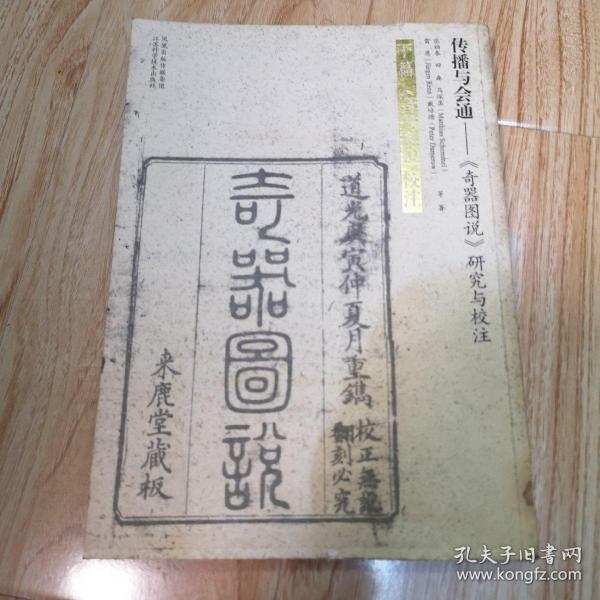 传播与会通——《奇器图说》研究与校注
张柏春 田淼 马深孟(Matthias Schemmel)
雷恩(Jürgen Renn) 戴培德(Peter Damerow) 等著
下篇 《奇器图说》校注
凤凰出版传媒集团
江苏科学技术出版社
道光庚寅仲夏月重鐫
校正無訛
翻刻必究
奇器圖說
来鹿堂藏板
孔夫子旧书网
www.kongfz.com